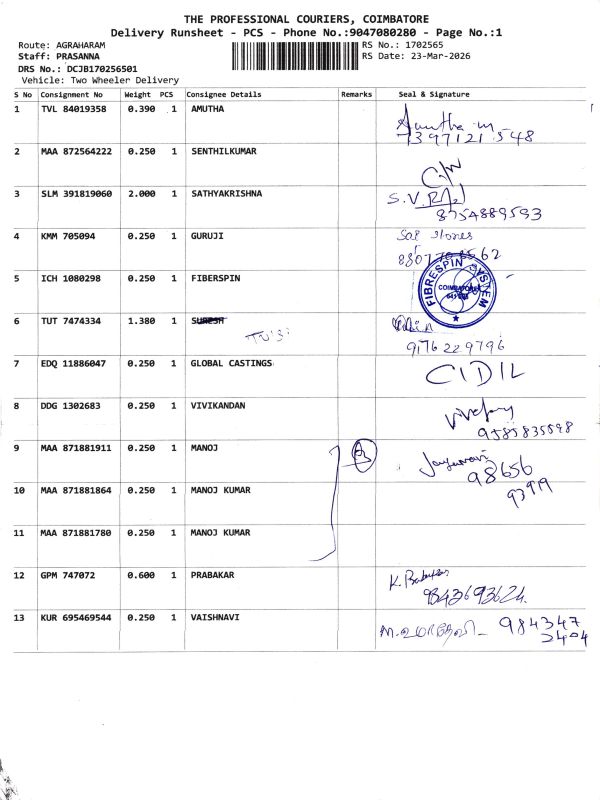 THE PROFESSIONAL COURIERS, COIMBATORE
Delivery Runsheet - PCS - Phone No.:9047080280 - Page No.:1
Route: AGRAHARAM RS No.: 1702565
Staff: PRASANNA RS Date: 23-Mar-2026
DRS No.: DCJB170256501
Vehicle: Two Wheeler Delivery
S No Consignment No Weight PCS Consignee Details Remarks Seal & Signature
1 TVL 84019358 0.390 1 AMUTHA Amutha m
2 MAA 872564222 0.250 1 SENTHILKUMAR C/W
3 SLM 391819060 2.000 1 SATHYAKRISHNA S.V.
8754889593
4 KMM 705094 0.250 1 GURUJI Sai stores
5 ICH 1080298 0.250 1 FIBERSPIN FIBRESPIN SYSTEM COIMBATORE
6 TUT 7474334 1.380 1 SURESH
9176229796
7 EDQ 11886047 0.250 1 GLOBAL CASTINGS CIDIL
8 DDG 1302683 0.250 1 VIVIKANDAN
9585835598
9 MAA 871881911 0.250 1 MANOJ 3
98656
10 MAA 871881864 0.250 1 MANOJ KUMAR
11 MAA 871881780 0.250 1 MANOJ KUMAR
12 GPM 747072 0.600 1 PRABAKAR K.
9843693624
13 KUR 695469544 0.250 1 VAISHNAVI M. உமாதேவி 984347
3404